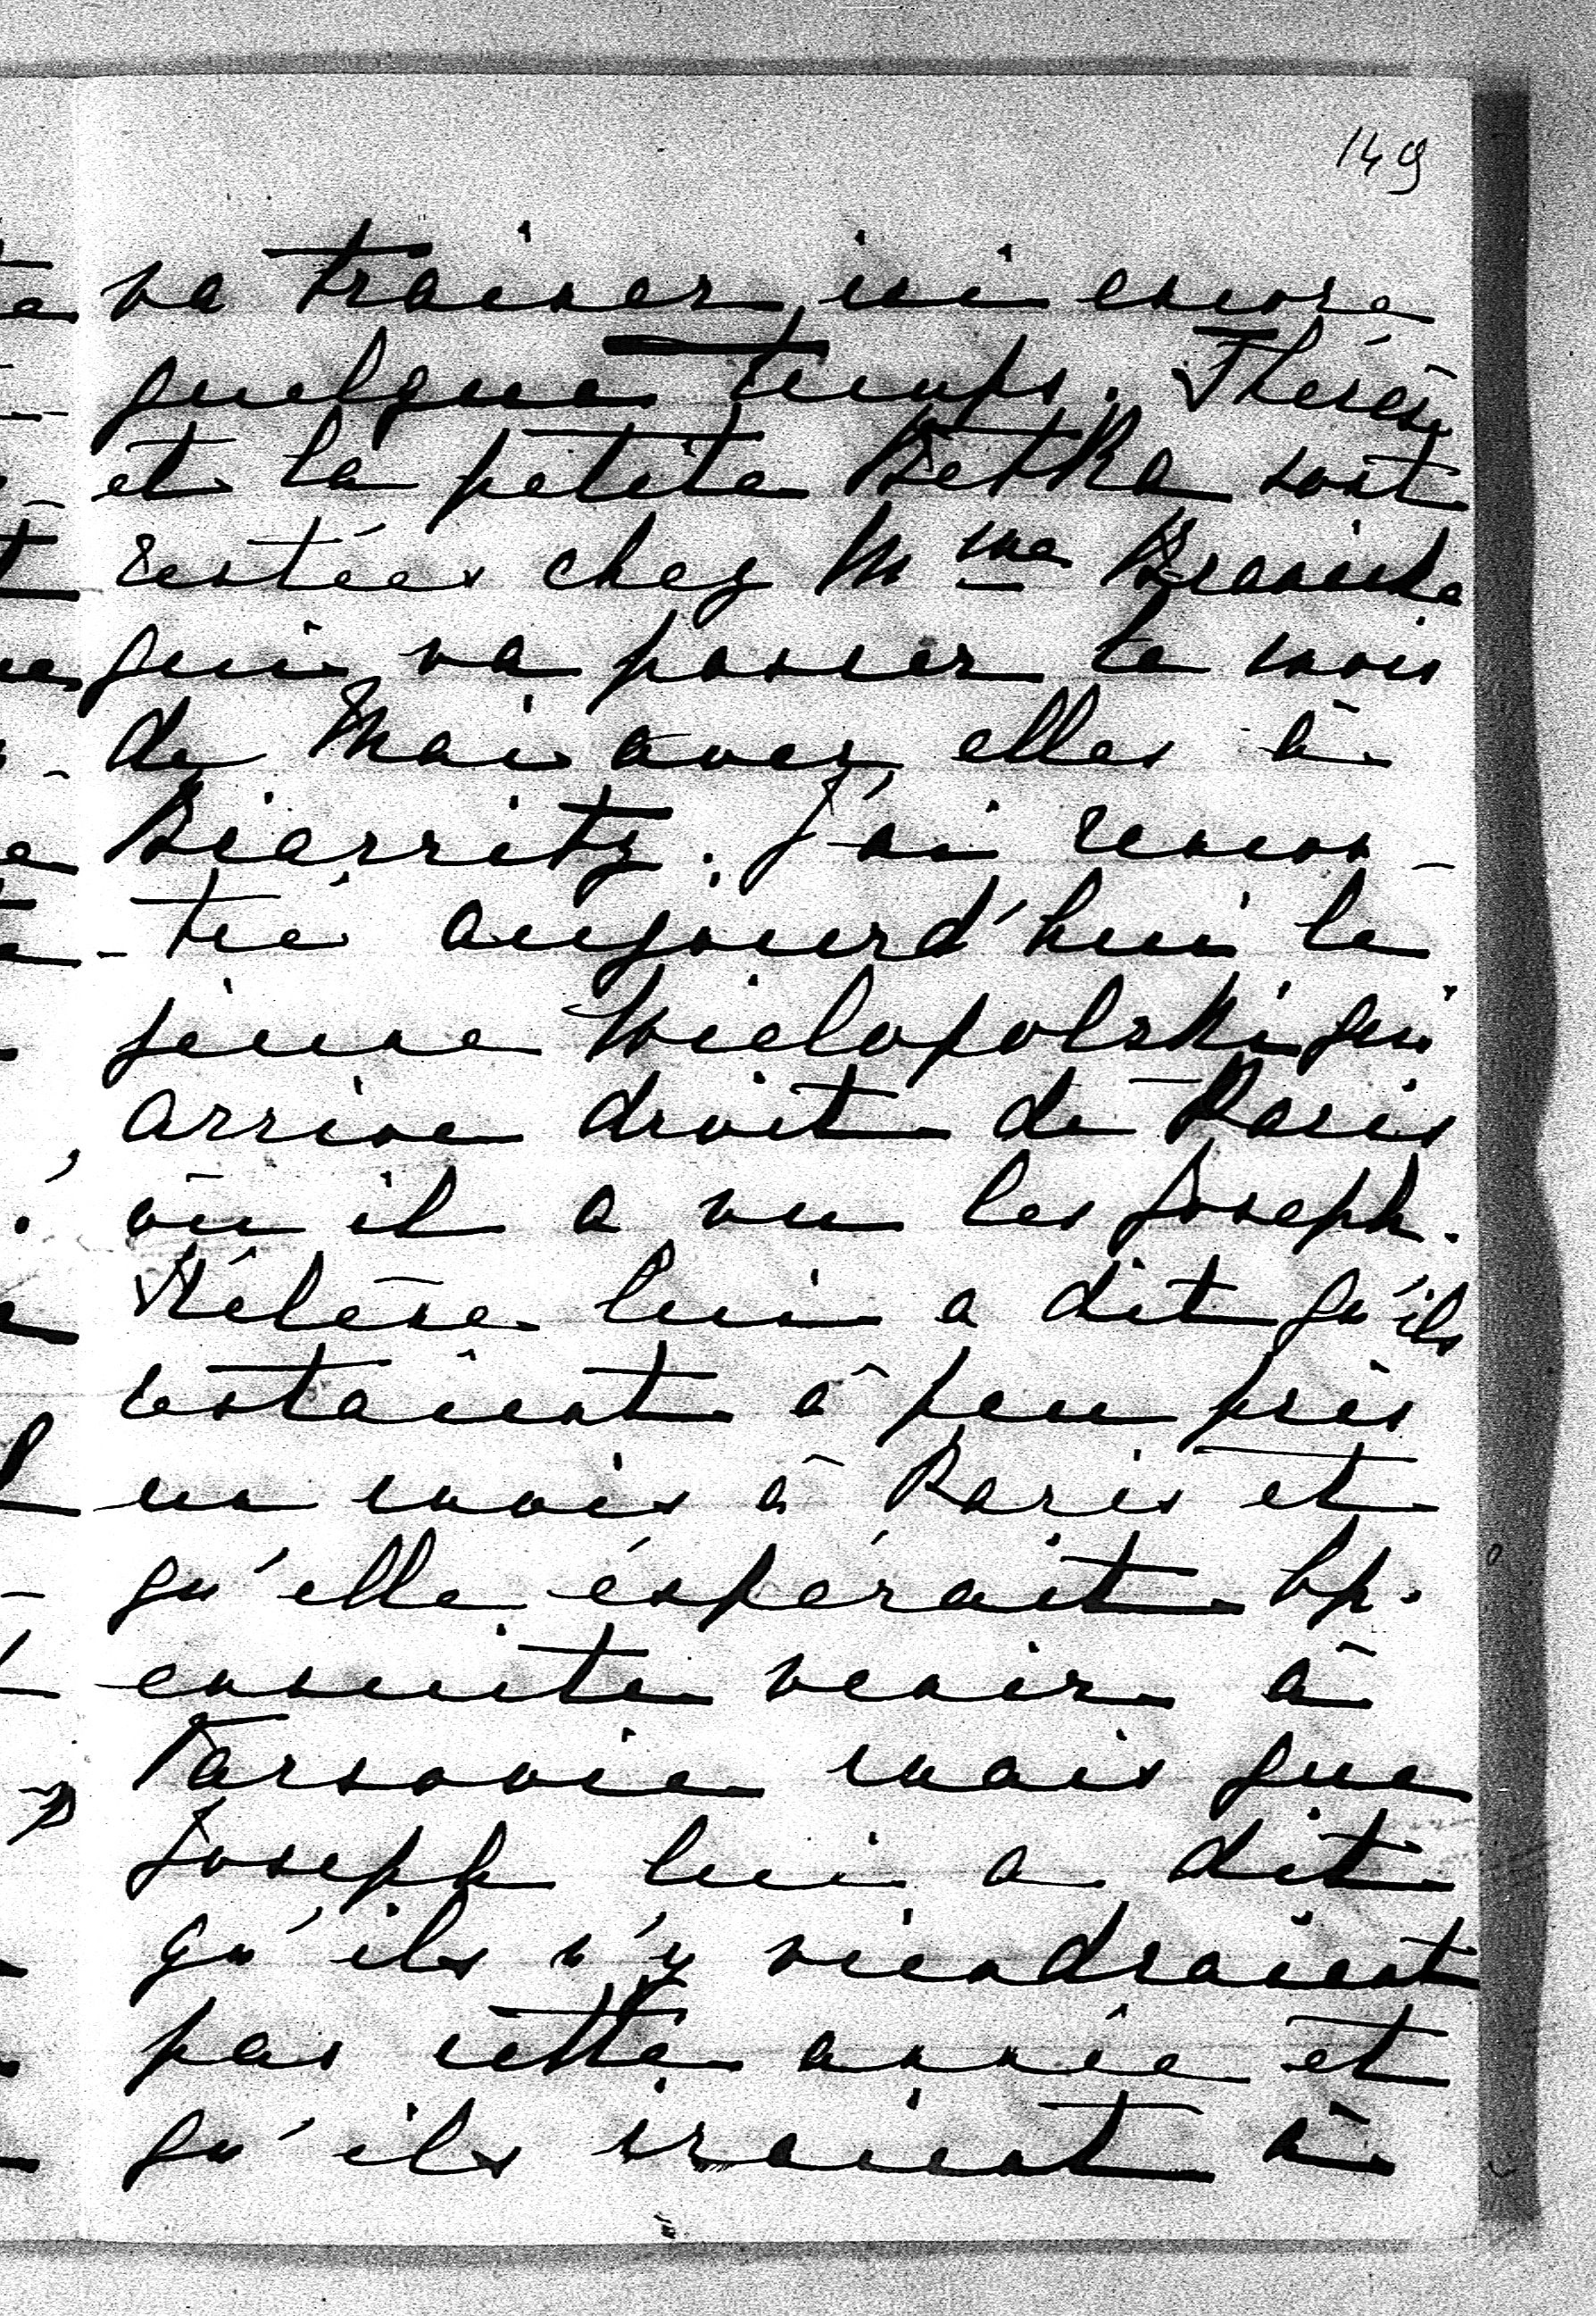 149
va trainer ici encore
quelque temps. Thérèse
et la petite Betka sont
restées chez Mme Branicka
qui va passer le mois
de Mai avec elles à
Biarritz. J'ai rencon-
-tré aujourd'hui le
jeune Wielopolski qui
arrive droit de Paris
où il a vu les Joseph.
Hélène lui a dit qu'ils
restaient à peu près
un mois à Paris et
qu'elle espérait
ensuite venir à
Varsovie mais que
Joseph lui a dit
qu'ils n'y viendraient
pas cette année et
qu'ils iraient à